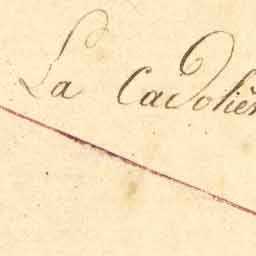 La Cadolièr